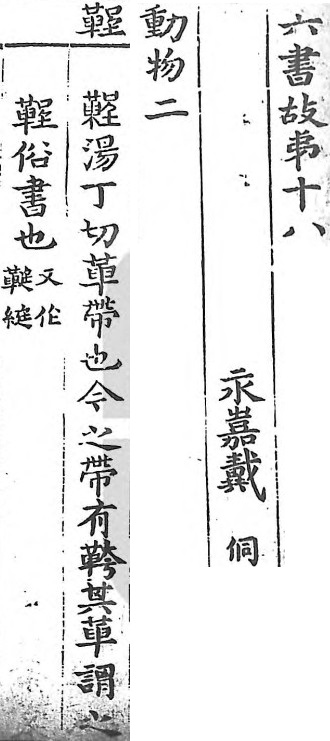 六書故弟十八
永嘉戴　侗
動物二
鞓
鞓湯丁切革帶也今之帶有鞶其革謂之
鞓俗書也又作鞓綎